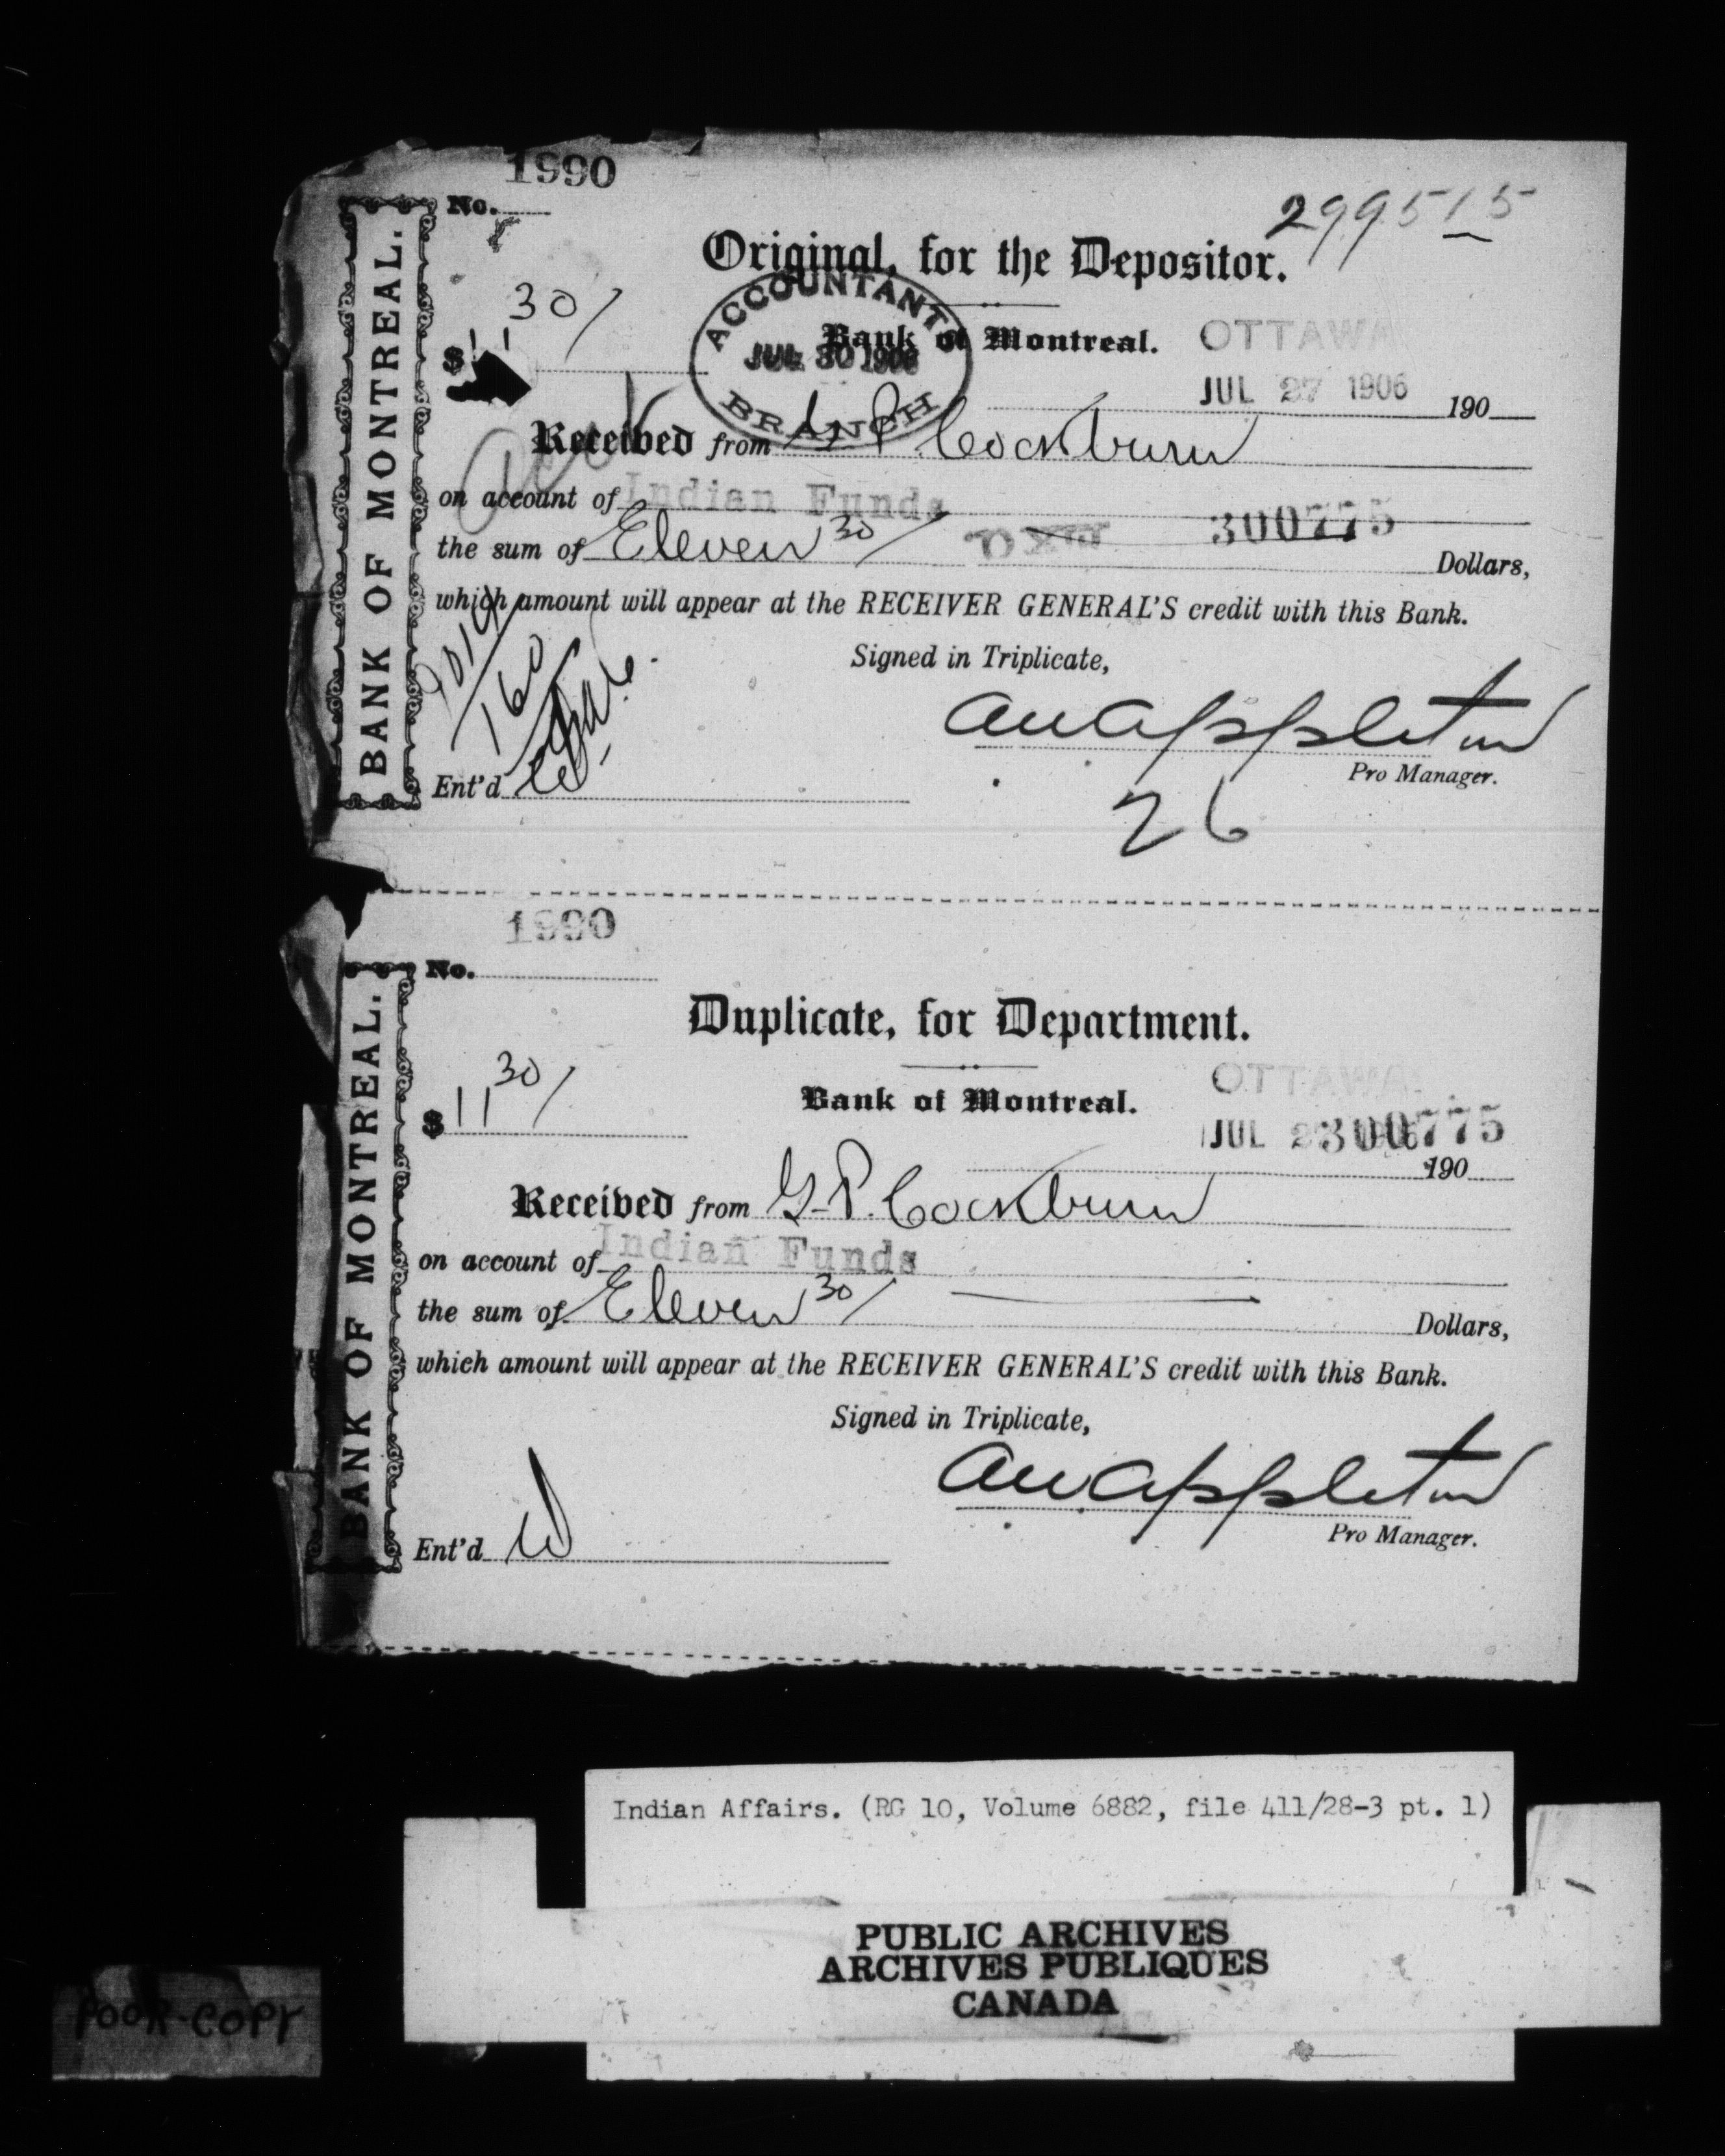 1990
No.
299515
Original, for the Depositor.
BANK OF MONTREAL.
$11 30/
ACCOUNTANTS
JUL 30 1906
BRANCH
Bank of Montreal.
OTTAWA
JUL 27 1906 190
Received from G. P. Cockburn
on account of Indian Funds
the sum of Eleven 30/ 300775 Dollars,
which amount will appear at the RECEIVER GENERAL'S credit with this Bank.
Signed in Triplicate,
160
Appleton
Pro Manager.
Ent'd
26
1990
No.
Duplicate, for Department.
BANK OF MONTREAL.
$11 30/
Bank of Montreal.
OTTAWA
JUL 27 1906 190
300775
Received from G. P. Cockburn
on account of Indian Funds
the sum of Eleven 30/ Dollars,
which amount will appear at the RECEIVER GENERAL'S credit with this Bank.
Signed in Triplicate,
Appleton
Pro Manager.
Ent'd
Indian Affairs. (RG 10, Volume 6882, file 411/28-3 pt. 1)
PUBLIC ARCHIVES
ARCHIVES PUBLIQUES
CANADA
POOR-COPY